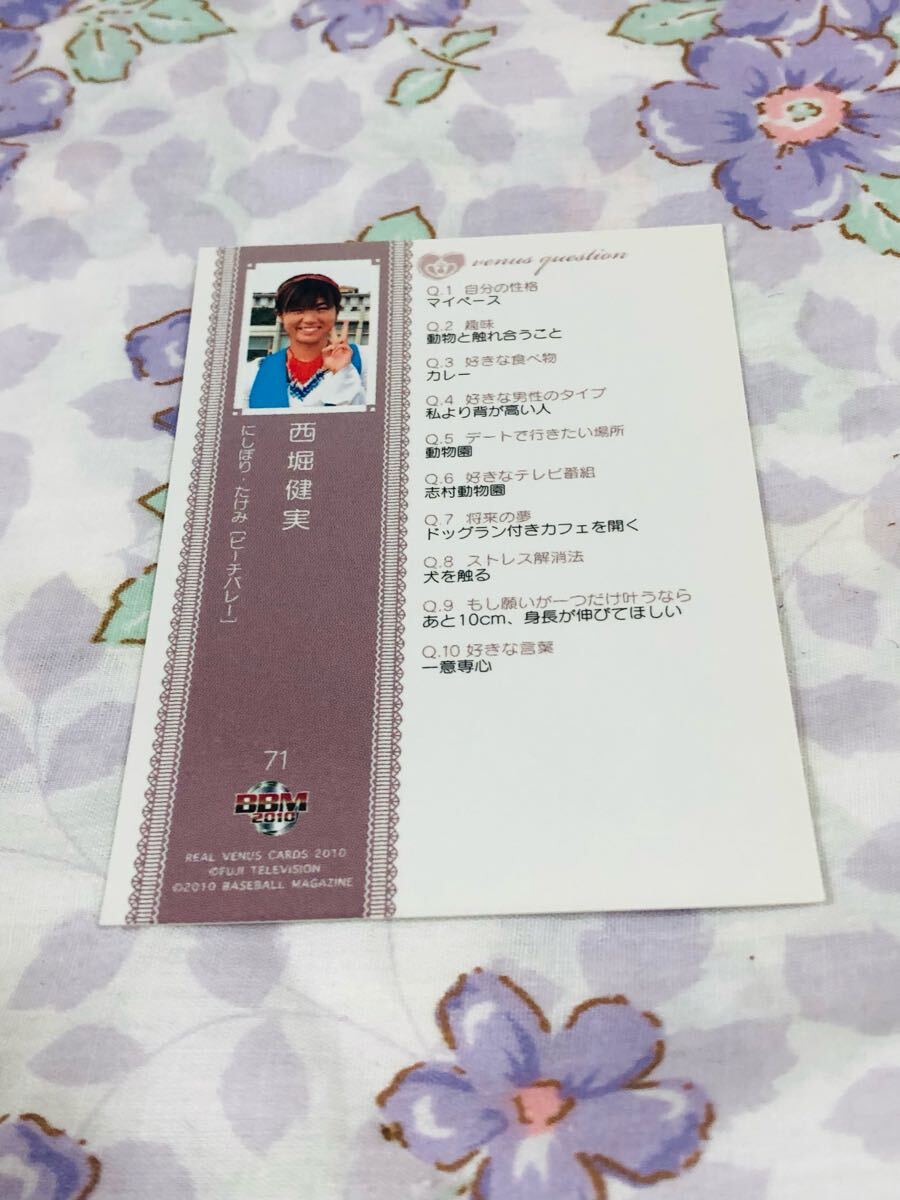 西堀健実
にしぼり・たけみ [ビーチバレー]
71
BBM
2010
REAL VENUS CARDS 2010
©FUJI TELEVISION
©2010 BASEBALL MAGAZINE
venus question
Q.1 自分の性格
マイペース
Q.2 趣味
動物と触れ合うこと
Q.3 好きな食べ物
カレー
Q.4 好きな男性のタイプ
私より背が高い人
Q.5 デートで行きたい場所
動物園
Q.6 好きなテレビ番組
志村動物園
Q.7 将来の夢
ドッグラン付きカフェを開く
Q.8 ストレス解消法
犬を触る
Q.9 もし願いが一つだけ叶うなら
あと10cm、身長が伸びてほしい
Q.10 好きな言葉
一意専心